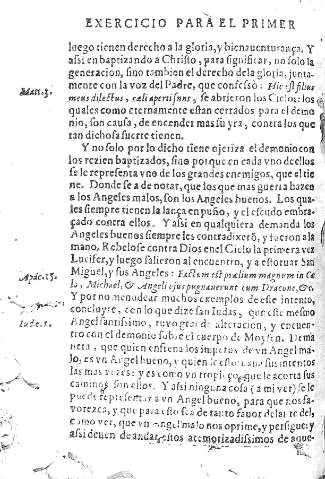 EXERCICIO PARA EL PRIMER
luego tienen derecho a la gloria, y bienauenturança. Y
assi en baptizando a Christo, para significar, no solo la
generacion, sino tambien el derecho de la gloria, junta-
mente con la voz del Padre, que confessò: Hic est filius
Matt. 3.
meus dilectus, cæli aperti sunt, se abrieron los Cielos: los
quales como eternamente estan cerrados para el demo
nio, son causa, de encender mas su yra, contra los que
tan dichosa suerte tienen.
Y no solo por lo dicho tiene ojeriza el demonio con
los rezien baptizados, sino porque en cada vno de ellos
se le representa vno de los grandes enemigos, que el tie
ne. Donde se a de notar, que los que mas guerra hazen
a los Angeles malos, son los Angeles buenos. Los qua-
les siempre tienen la lança en puño, y el escudo embra-
çado contra ellos. Y assi en qualquiera demanda los
Angeles buenos siempre les contradixerõ, y fueron a la
mano. Rebelose contra Dios en el Cielo la primera vez
Lucifer, y luego salieron al encuentro, y a estoruar San
Miguel, y sus Angeles: Factum est prælium magnum in Cæ
lo, Michael, & Angeli ejus pugnauerunt cum Dracone, &c.
Y por no menudear muchos exemplos de este intento,
concluyre, con lo que dize san Iudas, que este mismo
Iudæ. 1.
Angel santissimo, tuvo grande alteracion, y encuen-
tro con el demonio sobre el cuerpo de Moysen. De ma
nera, que quien enfrena los impetus de vn Angel ma
lo, es vn Angel bueno, y quien le sus intentos
las mas vezes: y es como vn que le acorta sus
caminos son ellos. Y assi ninguna cosa (a mi ver) se le
puede representar a vn Angel bueno, para que nos fa-
uorezca, y que para esto sea de tanto fauor delante del,
como ver, que vn Angel malo nos oprime, y persigue: y
assi deuen de andar estos atemorizadissimos de aque-